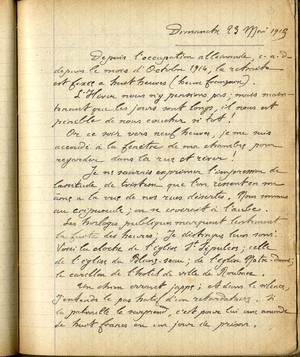 Dimanche 23 Mai 1915
Depuis l'occupation allemande, c-à-d-
depuis le mois d'Octobre 1914, la retraite
est fixée à huit heures (heure française).
L'Hiver nous n'y pensions pas; mais main-
tenant que les jours sont longs, il nous est
pénible de nous coucher si tôt!
Or ce soir vers neuf heures, je me suis
accoudé à la fenêtre de ma chambre pour
regarder dans la rue et rêver!
Je ne saurais exprimer l'impression de
lassitude de tristesse que l'on ressent en
âme à la vue de nos rues désertes. Nous sommes
au crépuscule; on se croirait à l'aube.
Les horloges publiques marquent lentement
la fuite des heures. Je distingue leur son:
Voici la cloche de l'église St Sépulcre; celle
de l'église du Blanc-seau; de l'église Notre-Dame;
le carillon de l'hotel de ville de Roubaix.
Un chien errant jappe; et dans le silence,
j'entends le pas hatif d'un retardataire. Si
la patrouille le surprend, c'est pour lui une amende
de huit francs ou un jour de prison.